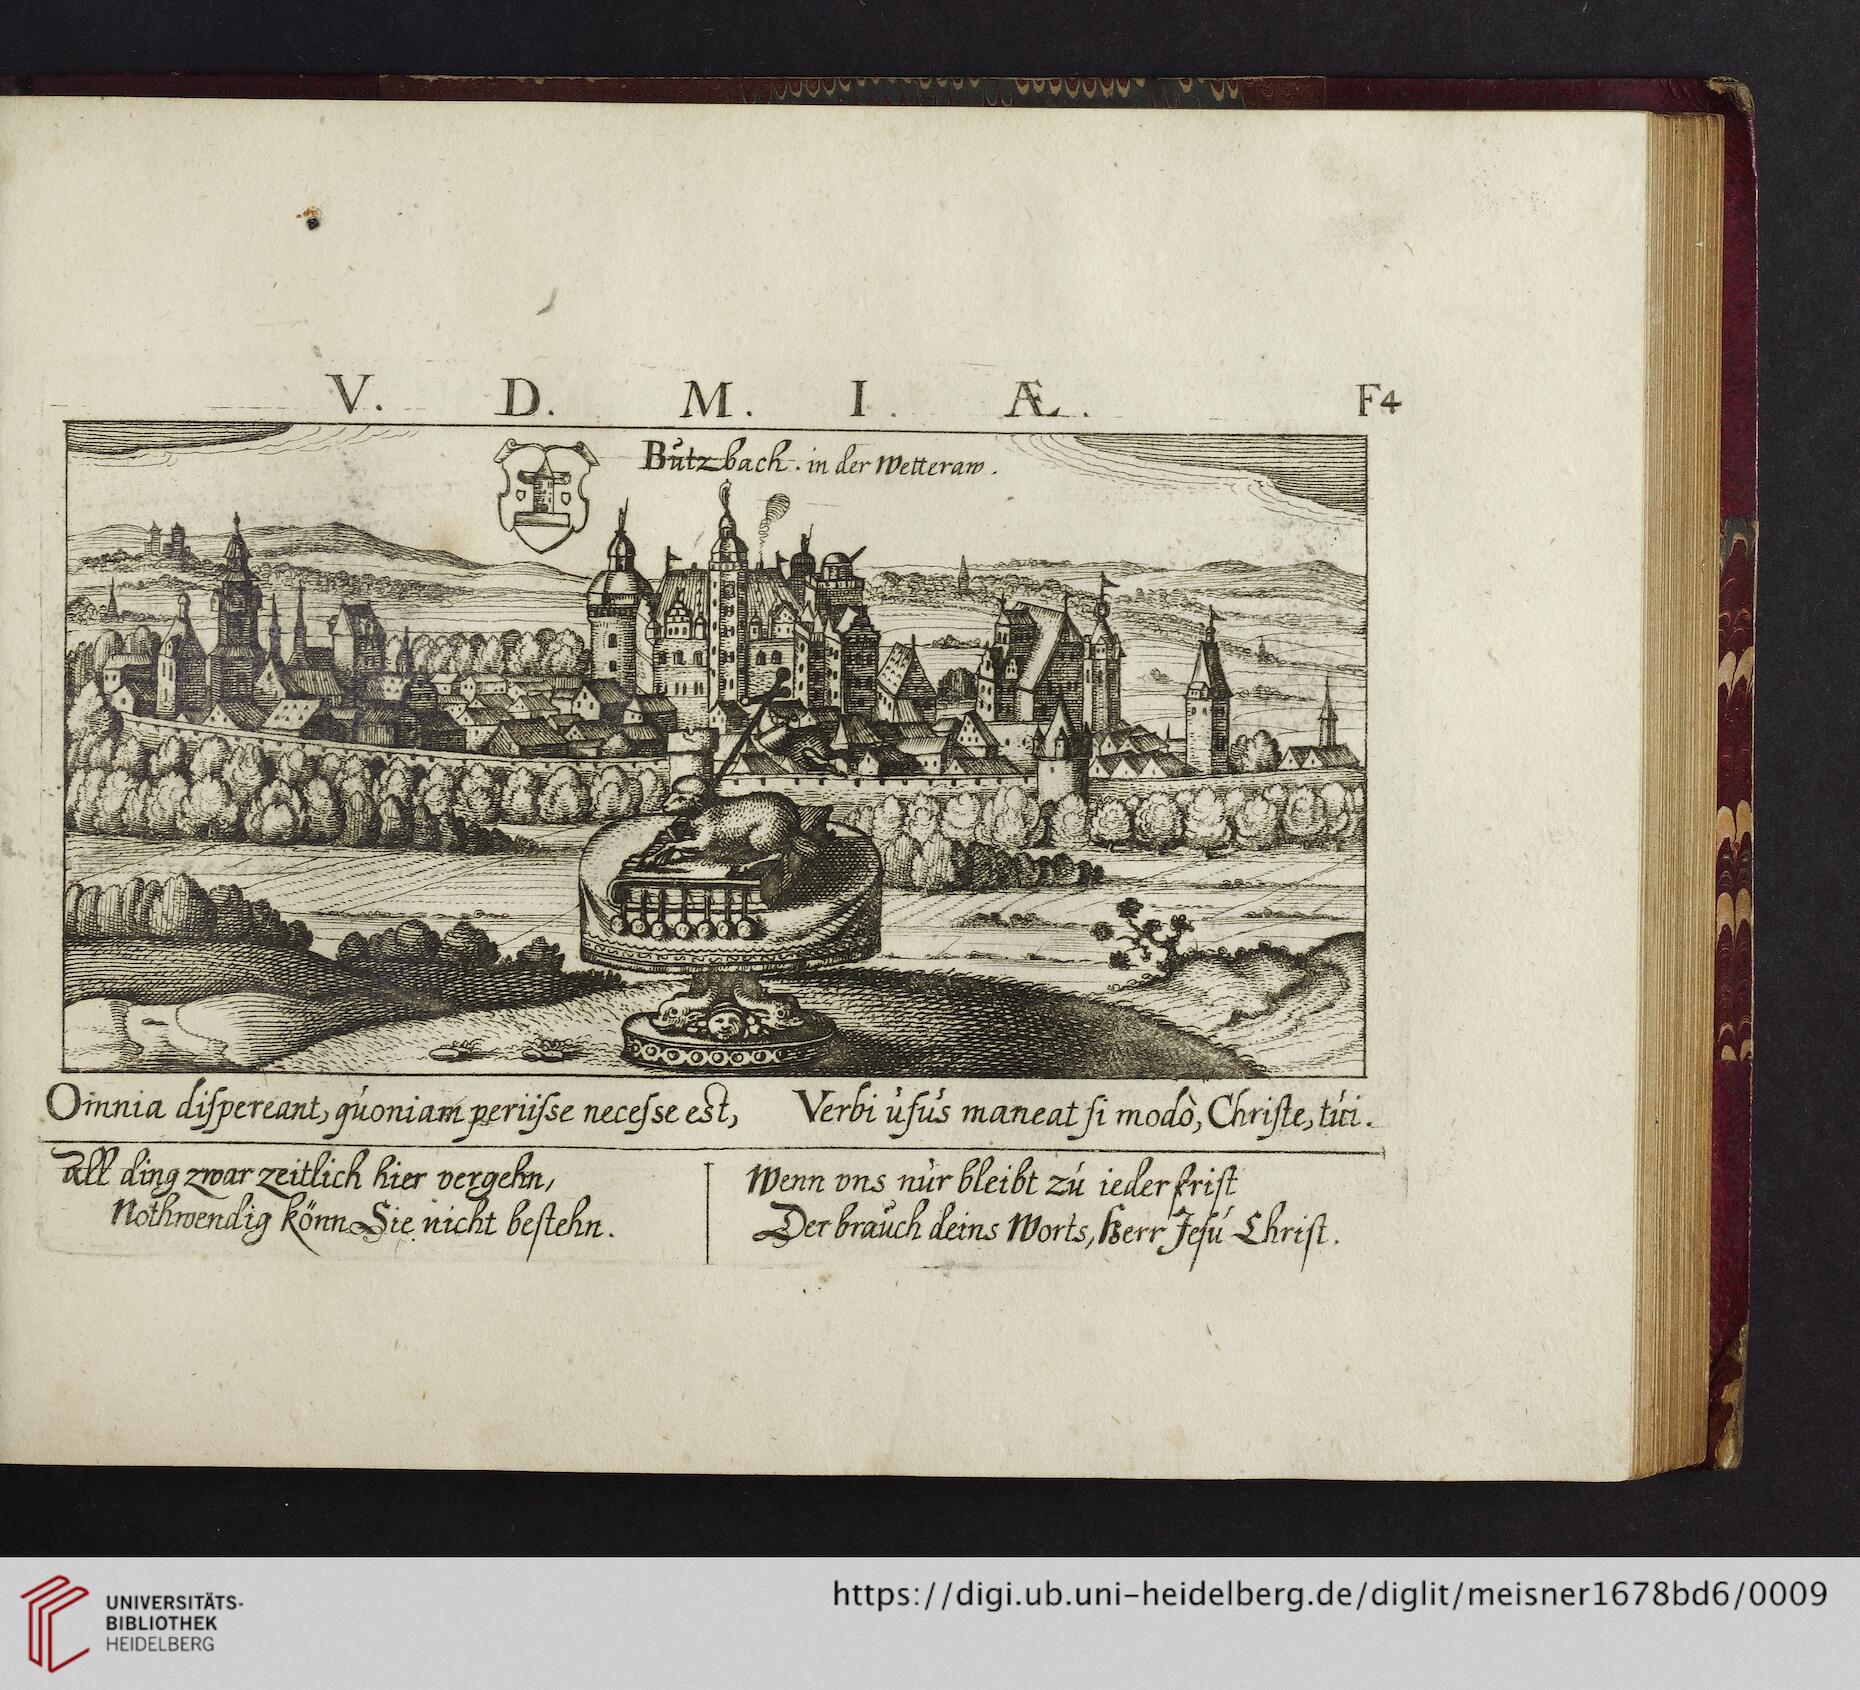 V. D. M. I. Æ. F4
Butzbach. in der Wetteraw.
Omnia diſpereant, quoniam periiſse neceſse est, Verbi uſus maneat ſi modò, Chriſte, tui.
All ding zwar zeitlich hier vergehn,
Nothwendig könn Sie nicht beſtehn.
Wenn vns nur bleibt zu ieder friſt
Der brauch deins Worts, Herr Jeſu Chriſt.
UNIVERSITÄTS-
BIBLIOTHEK
HEIDELBERG
https://digi.ub.uni-heidelberg.de/diglit/meisner1678bd6/0009